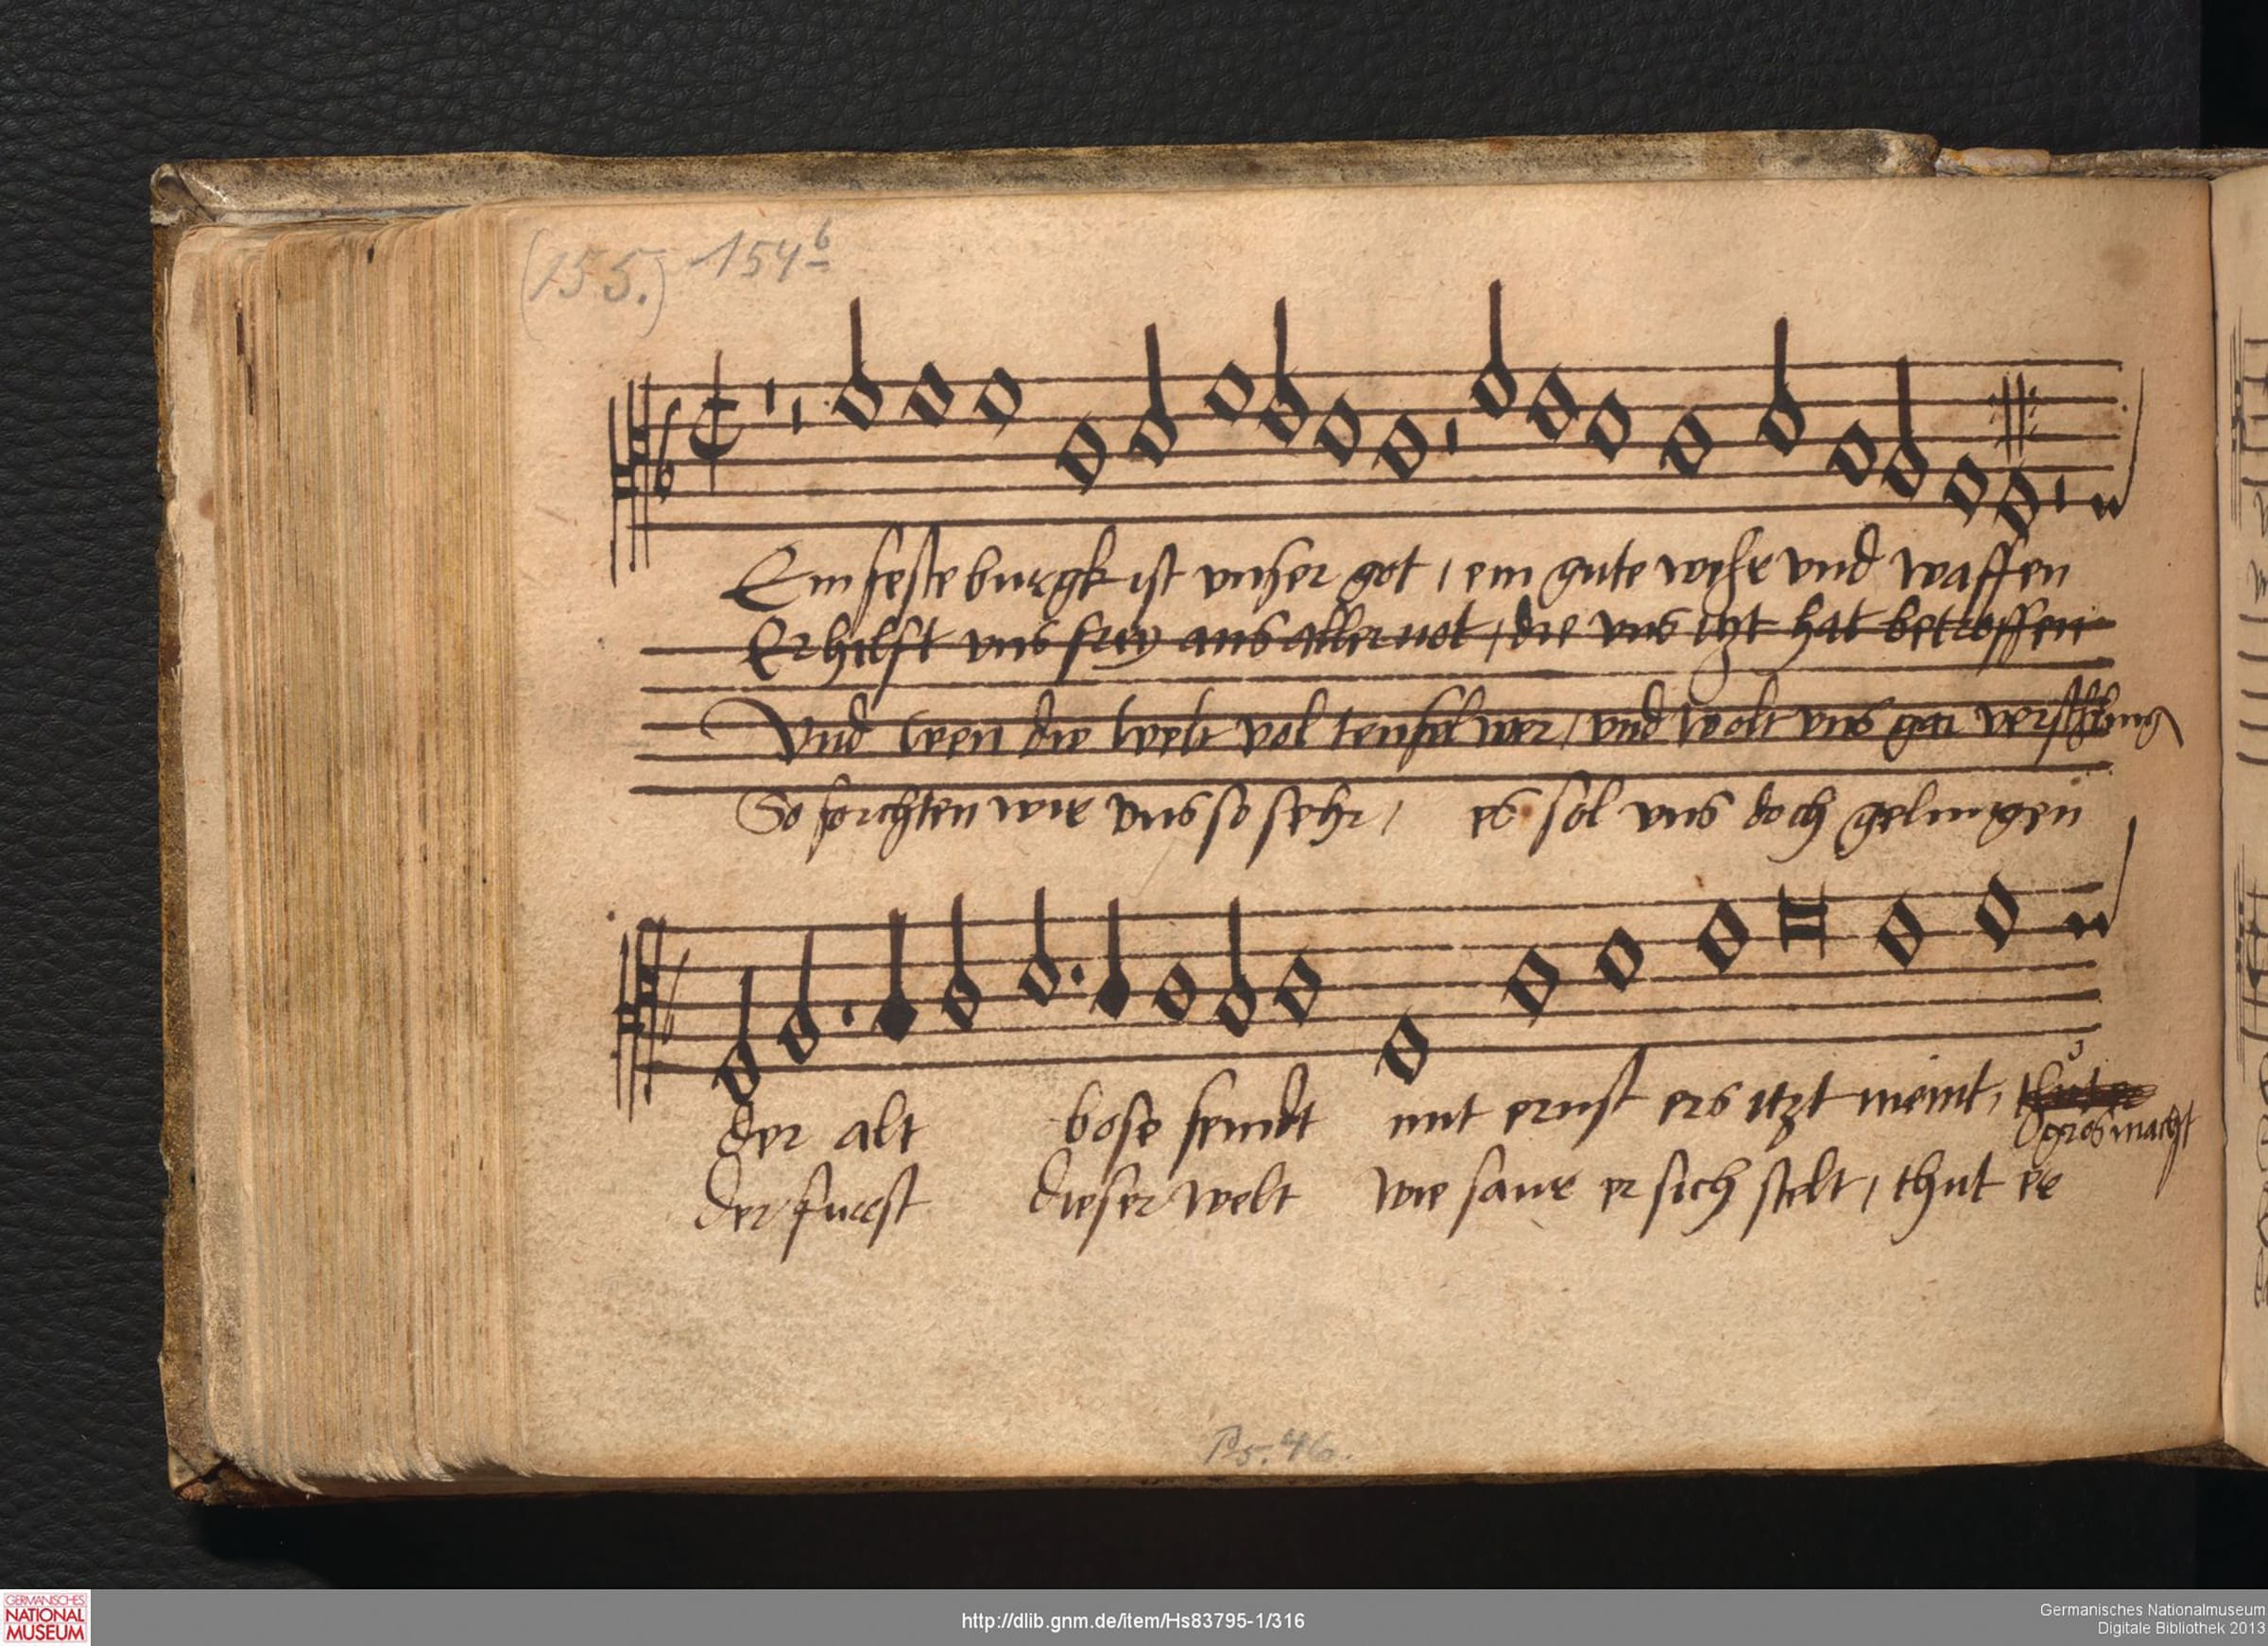 (155.) 154b
Ein feste burgk ist vnser got, ein gute wehr vnd waffen
Er hilfft vns frey aus aller not, die vns itzt hat betroffen
Vnd wen die welt vol teufel wer, vnd wolt vns gar verschling
So forchten wir vns so sehr, es sol vns doch gelingen
der alt bose feindt mit ernst ers itzt meint,
gros macht
der furst dieser welt wie saur er sich stelt, thut er
Ps. 46.
GERMANISCHES
NATIONAL
MUSEUM
http://dlib.gnm.de/item/Hs83795-1/316
Germanisches Nationalmuseum
Digitale Bibliothek 2013